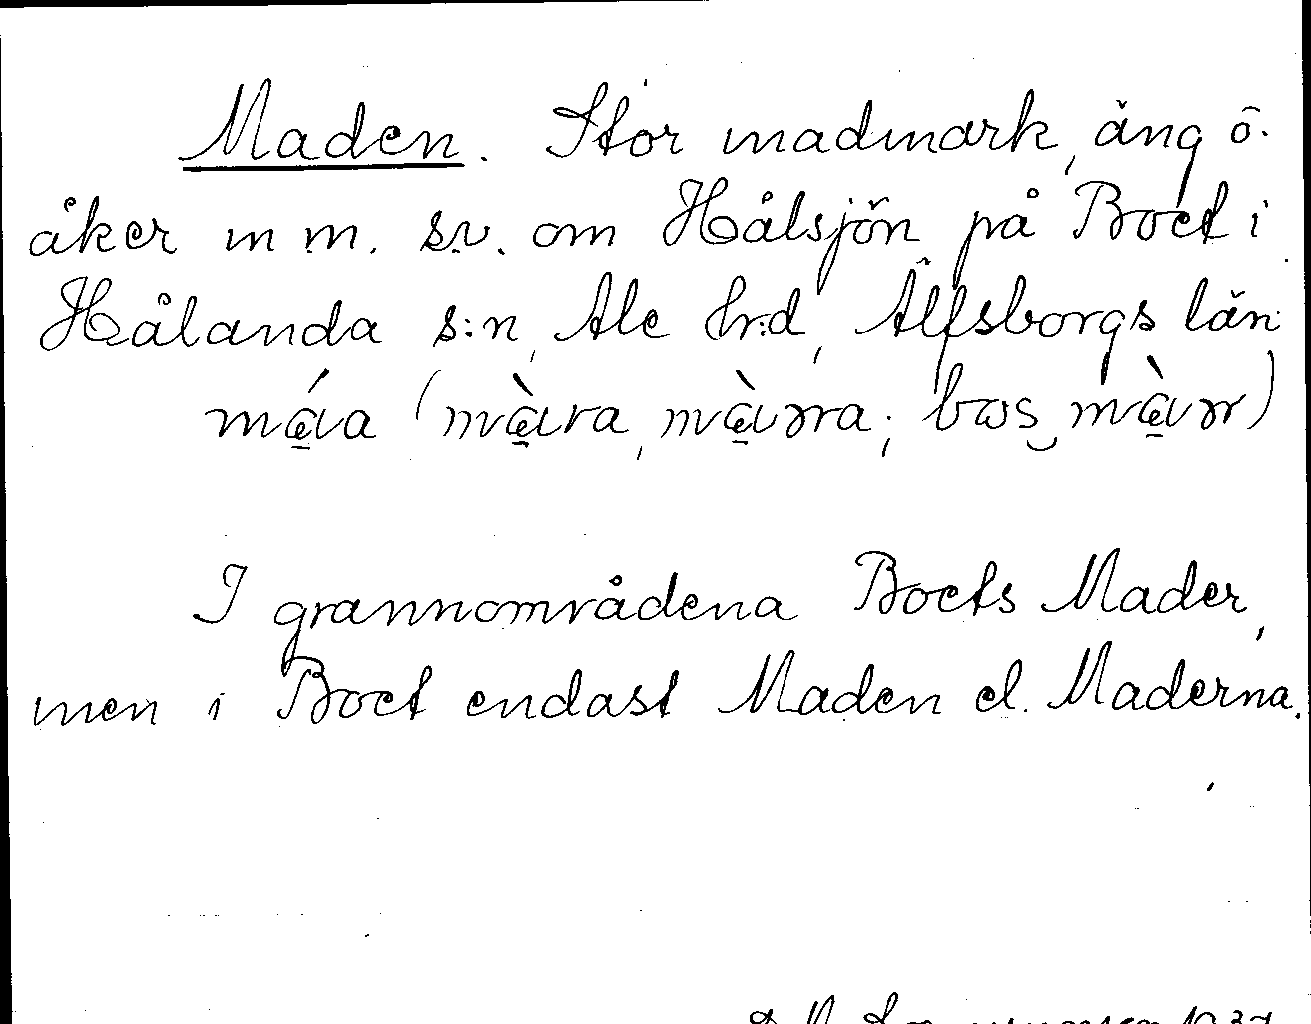 Maden. Stor madmark, äng o.
åker m.m. s.v. om Hålsjön på Boet i
Hålanda s:n, Ale hrd, Älfsborgs län.
I grannområdena Boets Mader,
men i Boet endast Maden el. Maderna.